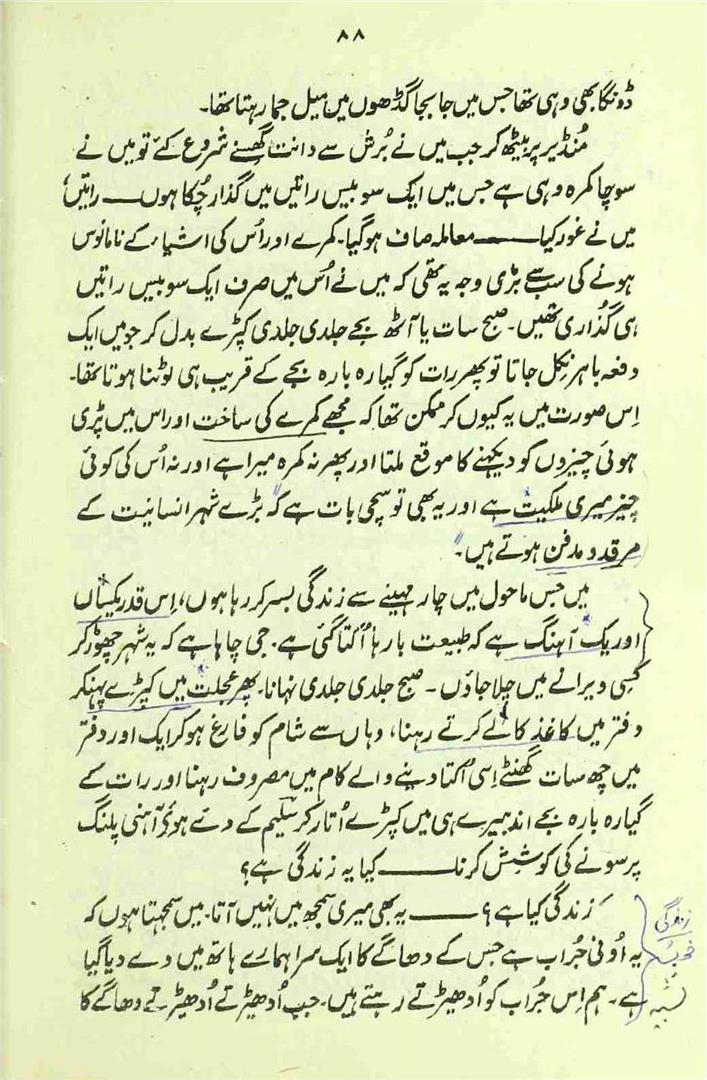 ۸۸
ڈونگا بھی وہی تھا جس میں جا بجا گڈھوں میں میل جما رہتا تھا۔
مُنڈیر پر بیٹھ کر جب میں نے بُرش سے دانت گھسنے شروع کئے تو میں نے
سوچا کمرہ وہی ہے جس میں ایک سو بیس راتیں میں گذار چُکا ہوں —— راتیں،
میں نے غور کیا —— معاملہ صاف ہو گیا۔ کمرے اور اُس کی اشیاء کے نامانوس
ہونے کی سب سے بڑی وجہ یہ تھی کہ میں نے اُس میں صرف ایک سو بیس راتیں
ہی گذاری تھیں۔ صبح سات یا آٹھ بجے جلدی جلدی کپڑے بدل کر جو میں ایک
دفعہ باہر نِکل جاتا تو پھر رات کو گیارہ بارہ بجے کے قریب ہی لوٹنا ہوتا تھا۔
اِس صورت میں یہ کیوں کر ممکن تھا کہ مجھے کمرے کی ساخت اور اس میں پڑی
ہوئی چیزوں کو دیکھنے کا موقع ملتا اور پھر نہ کمرہ میرا ہے اور نہ اُس کی کوئی
چیز میری ملکیت ہے اور یہ بھی تو سچی بات ہے کہ "بڑے شہر انسانیت کے
مرقد و مدفن ہوتے ہیں۔"
میں جس ماحول میں چار مہینے سے زندگی بسر کر رہا ہوں، اِس قدر یکساں
اور یک آہنگ ہے کہ طبیعت بارہا اُکتا گئی ہے۔ جی چاہا ہے کہ یہ شہر چھوڑ کر
کسی ویرانے میں چلا جاؤں۔ صبح جلدی جلدی نہانا۔ پھر عجلت میں کپڑے پہنکر
دفتر میں کاغذ کالے کرتے رہنا، وہاں سے شام کو فارغ ہو کر ایک اور دفتر
میں چھ سات گھنٹے اِسی اُکتا دینے والے کام میں مصروف رہنا اور رات کے
گیارہ بارہ بجے اندہیرے ہی میں کپڑے اُتار کر سلیم کے دئے ہوئے آہنی پلنگ
پر سونے کی کوشِش کرنا —— کیا یہ زندگی ہے؟
زندگی کیا ہے؟ —— یہ بھی میری سمجھ میں نہیں آتا۔ میں سمجہتا ہوں کہ
یہ اُونی جُراب ہے جس کے دھاگے کا ایک سرا ہمارے ہاتھ میں دے دیا گیا
ہے۔ ہم اِس جُراب کو اُدھیڑتے رہتے ہیں۔ جب اُدھیڑتے اُدھیڑتے دھاگے کا
زندگی